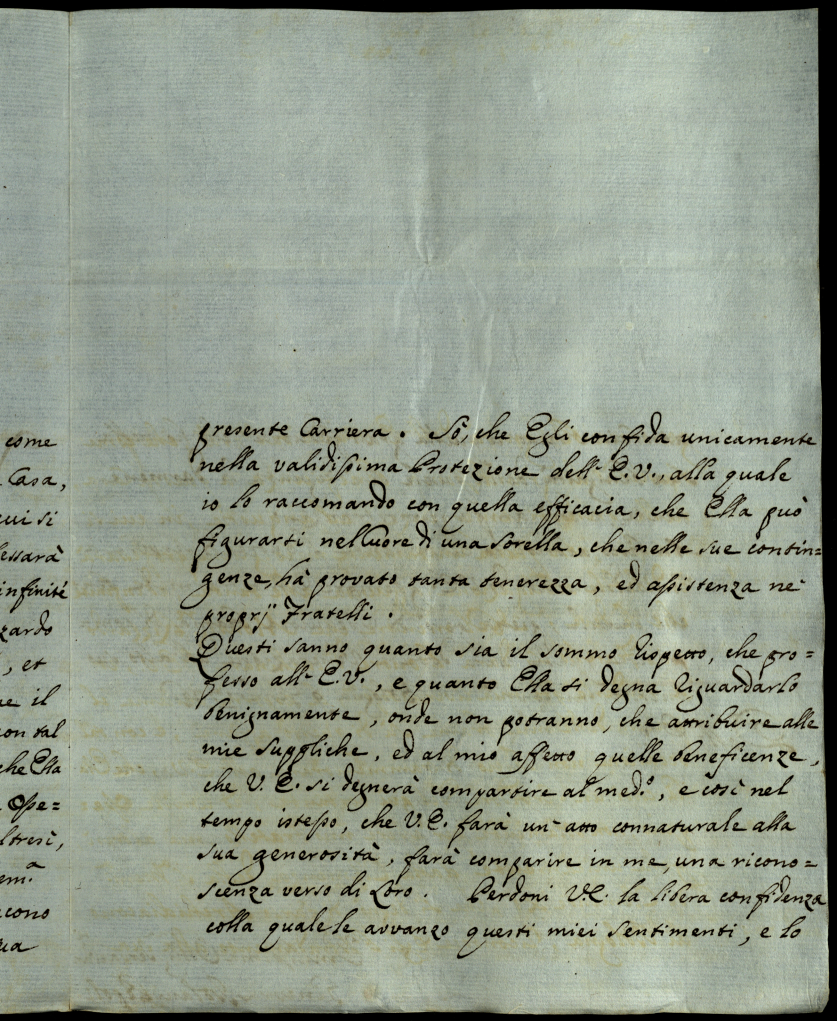 come
Casa,
cui si
lessarà
infinité
zardo
, et
ue il
con tal
che Ella
Ope=
ltresì,
em.a
cono
ua
presente Carriera. Sò, che Egli confida unicamente
nella validissima Protezione dell' E. V., alla quale
io lo raccomando con quella efficacia, che Ella può
figurarsi nel Cuore di una Sorella, che nelle sue contin=
genze, hà provato tanta tenerezza, ed assistenza ne'
proprij Fratelli.
Questi sanno quanto sia il sommo rispetto, che pro=
fesso all' E. V., e quanto Ella si degna riguardarlo
benignamente, onde non potranno, che attribuire alle
mie suppliche, ed al mio affetto quelle beneficenze,
che V. E. si degnerà compartire al med.o, e così nel
tempo istesso, che V. E. farà un' atto connaturale alla
sua generosità, farà comparire in me, una ricono=
scenza verso di Loro. Perdoni V. E. la libera confidenza
colla quale le avvanzo questi miei Sentimenti, e lo